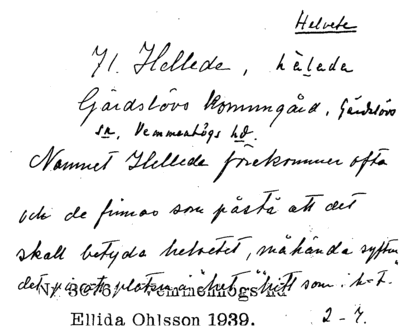 Helvete
71. Hellede, hälada
Gärdslövs Kommungård, Gärdslövs
sn, Vemmenhögs hd.
Namnet Hellede förekommer ofta
och de finnas som påstå att det
skall betyda helvetet, måhända syftar
det på att platsen är "het" hett som i h-t."
Vemmenhögs hd
Ellida Ohlsson 1939. 2-7.